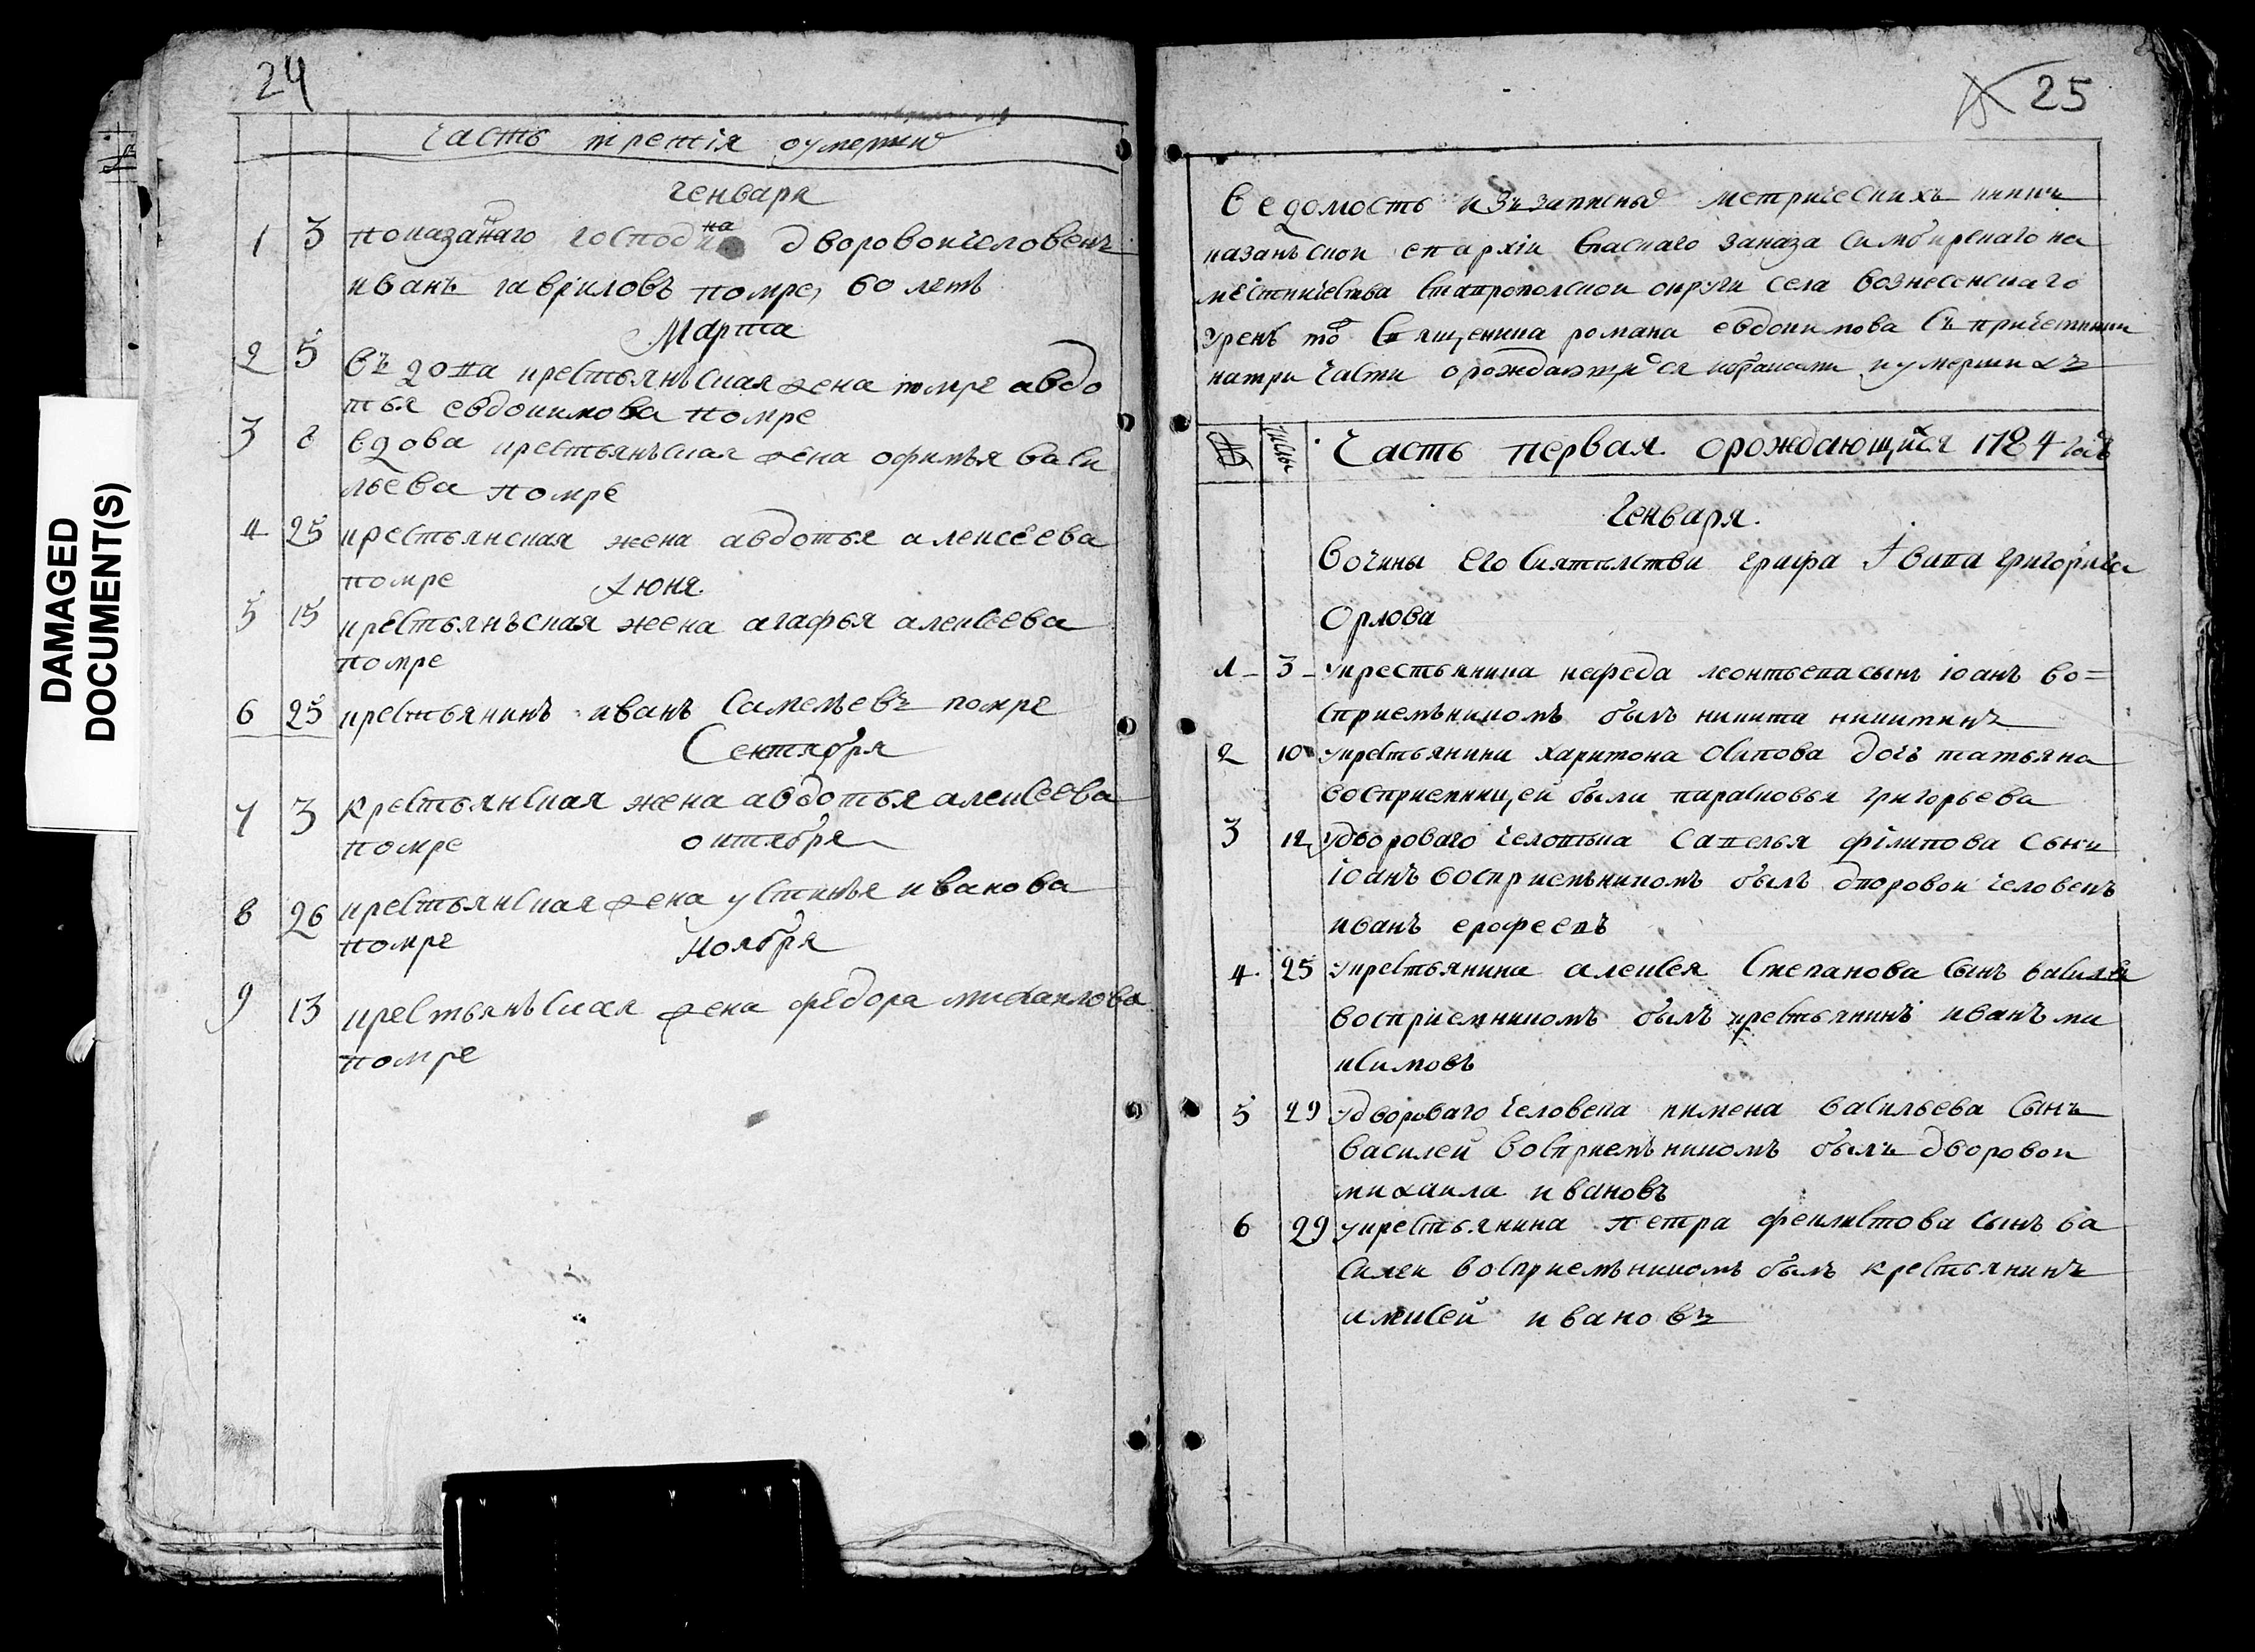 24
Часть третїя оумерши
Генваря
1 3 показаннаго господина дворовои человекъ
иванъ гавриловъ помре, 60 летъ
Марта
2 5 вдова крестьянъская жена помре авдо
тья евдокимова помре
3 8 вдова крестьянъская жена офимья васи
льева помре
4 25 крестьянская жена авдотья алексеева
помре Июня
5 15 крестьянъская жена агафья алексеева
помре
6 25 крестьянинъ иванъ савельевъ помре
Сентября
7 3 крестьянская жена авдотья алексеева
помре октября
8 26 крестьянская жена устинья иванова
помре ноября
9 13 крестьянъская жена федора михаилова
помре
DAMAGED
DOCUMENT(S)
25
Ведомость изъ записныхъ метрическихъ книгъ
казанъскои епархїи спаскаго заказа симбирскаго на
местничества ставрополскои округи села вознесенскаго
урень тожъ священника романа евдокимова съ причетники
натри части орождающихся и умершихъ
№ числы Часть первая орождающихся 1784 годъ
Генваря.
Вочины Его Сиятельства графа Ивана григорича
Орлова
1 3 укрестьянина нефеда леонтьева сынъ iоанъ во=
сприемъникомъ былъ никита никитинъ
2 10 укрестьянина харитона осипова дочь татьяна
восприемницей была парасковья григорьева
3 12 удвороваго человека савелья фiлипова сынъ
iоанъ восприемъникомъ былъ дворовои человекъ
иванъ ерофеевъ
4 25 укрестьянина алексея степанова сынъ василей
восприемникомъ былъ крестьянинъ иванъ ма
ксимовъ
5 29 удвороваго человека пимена васильева сынъ
василей восприемъникомъ былъ дворовои
михаила ивановъ
6 29 укрестьянина петра феклистова сынъ ва
силеи восприемъникомъ былъ крестьянинъ
алексей ивановъ